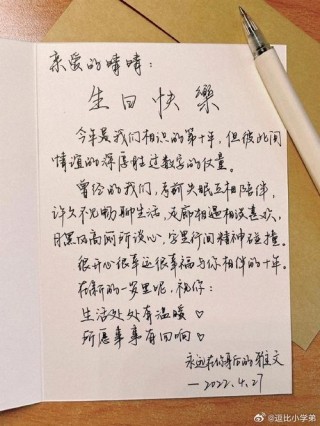 亲爱的晴晴：
生日快樂
今年是我们相识的第十年，但彼此间
情谊的深厚胜过数字的仅量。
曾经的我们，考前失眠互相陪伴，
许久不见畅聊生活，走廊相遇相谈甚欢，
月黑风高厕所谈心，字里行间精神碰撞。
很开心很幸运很幸福与你相伴的十年。
在新的一岁里呢，祝你：
生活处处有温暖♡
所愿事事有回响♡
永远在你身后的雅文
—2022.4.27
@逗比小学弟_